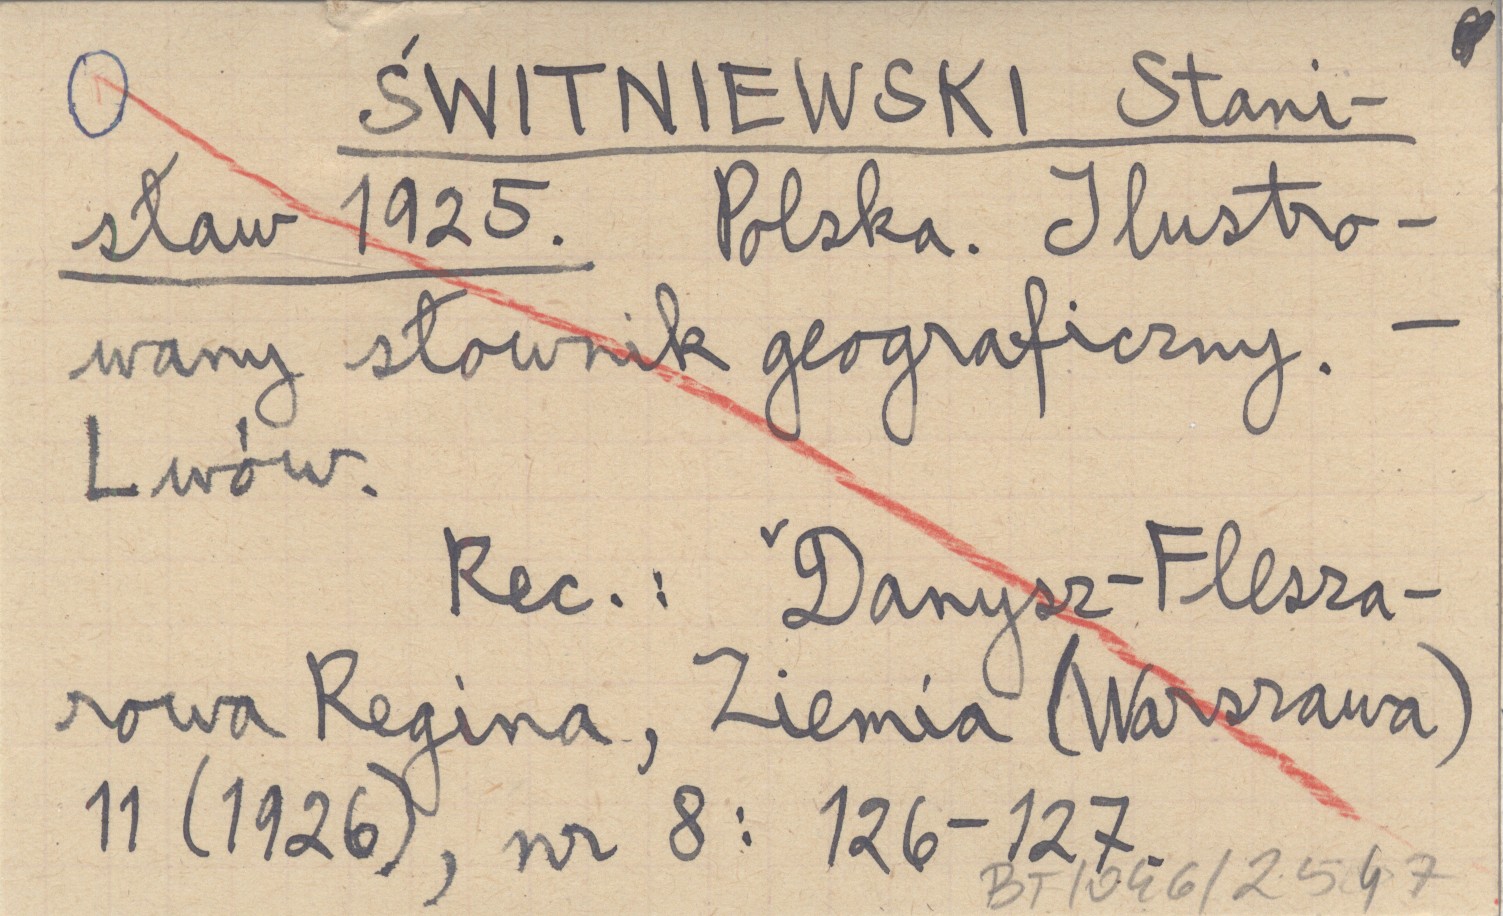 ŚWITNIEWSKI Stani-
sław 1925. Polska. Ilustro-
wany słownik geograficzny. —
Lwów.
Rec.: Danysz-Flesza-
rowa Regina, Ziemia (Warszawa)
11 (1926), nr 8: 126-127.
BT/046/2547